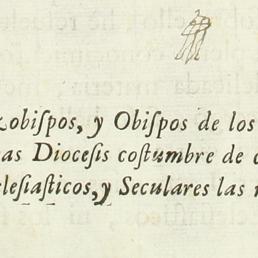 obiſpos, y Obiſpos de los
as Dioceſis coſtumbre de
leſiaſticos, y Seculares las